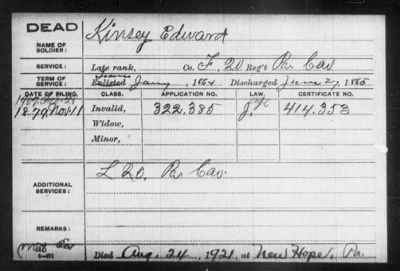 DEAD
NAME OF SOLDIER: Kinsey Edward
SERVICE: Late rank, Co. F, 20 Reg't Pa. Cav
TERM OF SERVICE: Enlisted Jany, 1864 Discharged June 27, 1865
DATE OF FILING. CLASS. APPLICATION NO. LAW. CERTIFICATE NO.
1879 Nov 11 Invalid, 322.385 414.353
Widow,
Minor,
ADDITIONAL SERVICES: L 20. Pa Cav.
REMARKS:
Died Aug. 24, 1921, at New Hope, Pa.